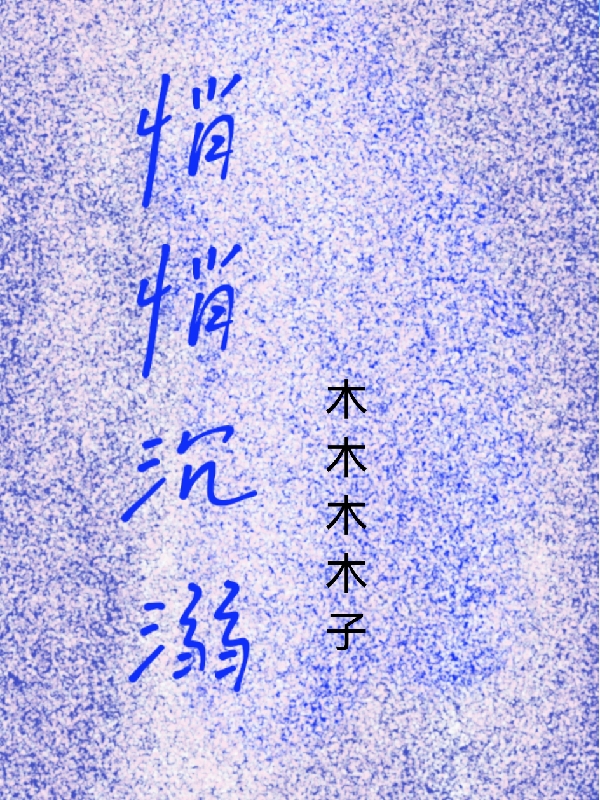 悄悄沉溺
木木木木子